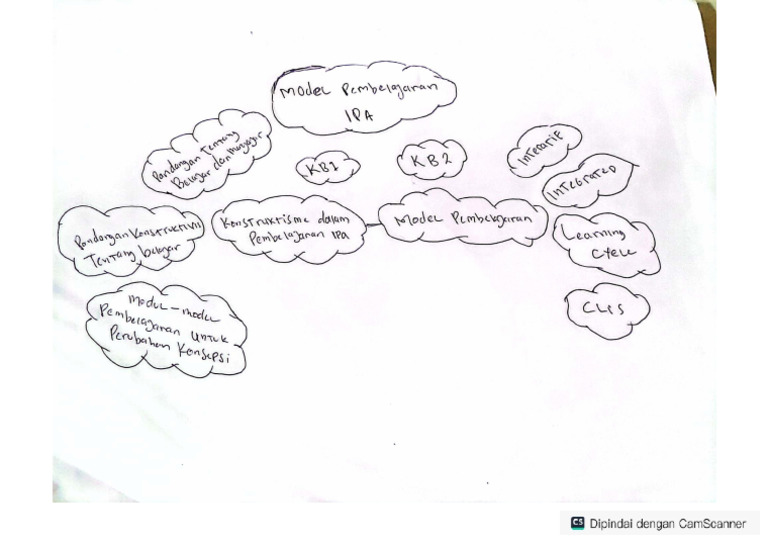 Model Pembelajaran
IPA
Pandangan Tentang
Belajar dan mengajar
KB1
KB2
INTERATIF
INTEGRATED
Pandangan Konstruktivis
Tentang belajar
Konstruktisme dalam
Pembelajaran IPA
Model Pembelajaran
Learning
Cycle
Model-model
Pembelajaran untuk
Perubahan Konsepsi
CLIS
CS Dipindai dengan CamScanner